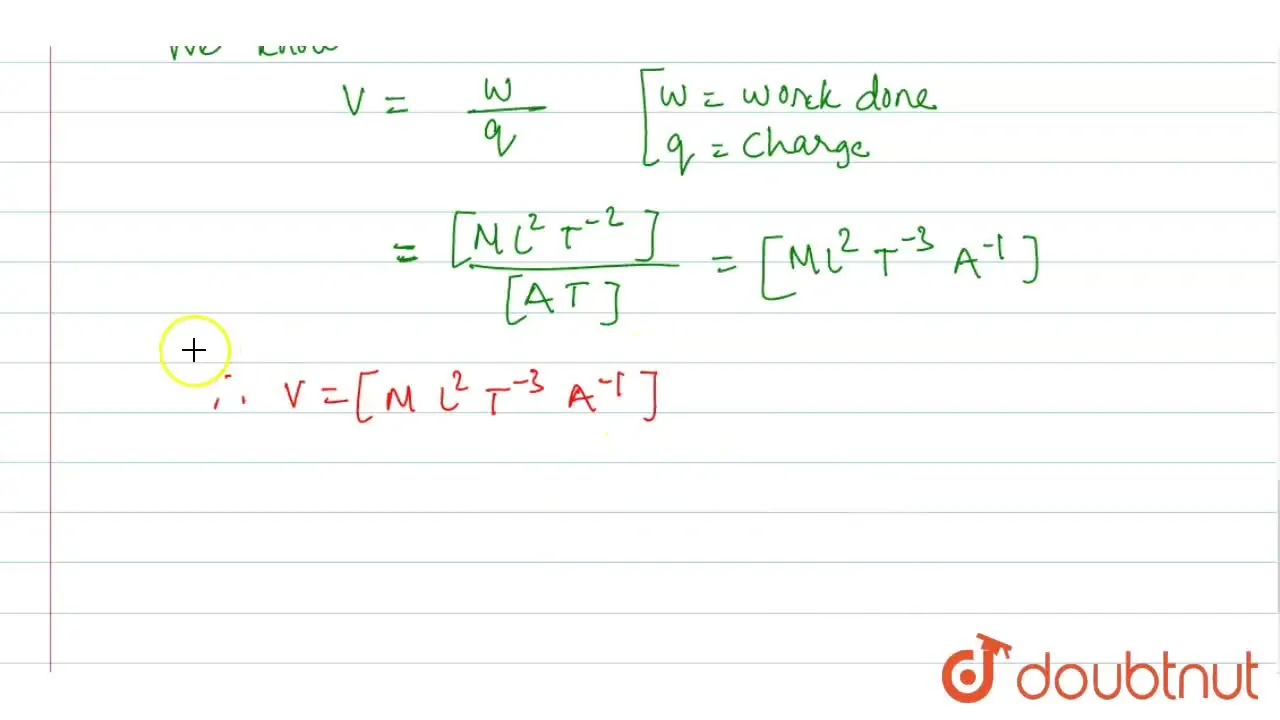 We know
V = w/q [w = work done
q = charge
= [M L² T⁻²]/[A T] = [M L² T⁻³ A⁻¹]
∴ V = [M L² T⁻³ A⁻¹]
doubtnut